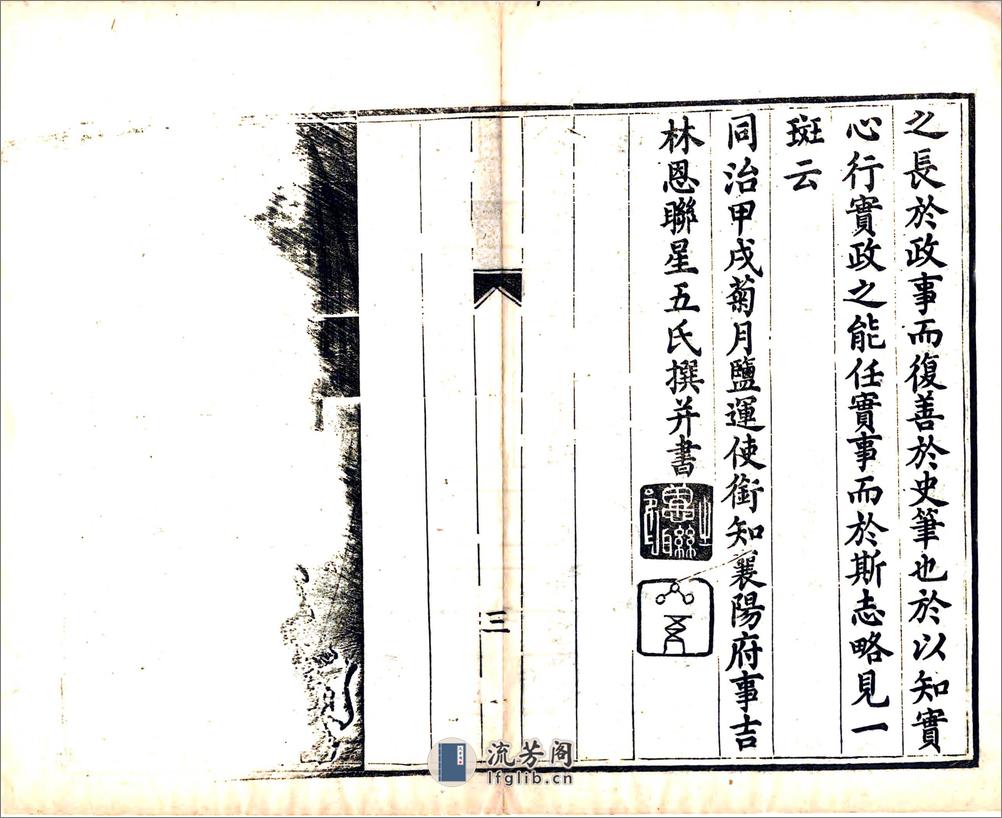 之長於政事而復善於史筆也於以知實
心行實政之能任實事而於斯志略見一
斑云
同治甲戌菊月鹽運使銜知襄陽府事吉
林恩聯星五氏撰并書
恩聯之印
星五
三
流芳阁
lfglib.cn